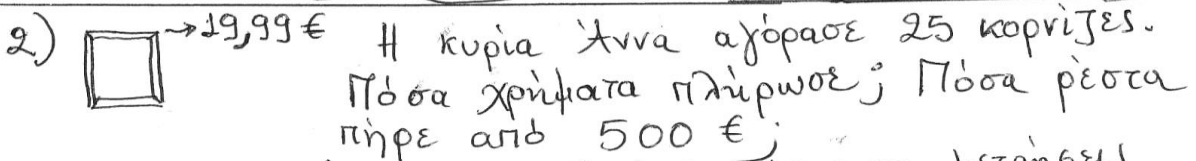 2) →19,99 € Η κυρία Άννα αγόρασε 25 κορνίζες.
Πόσα χρήματα πλήρωσε; Πόσα ρέστα
πήρε από 500 €;